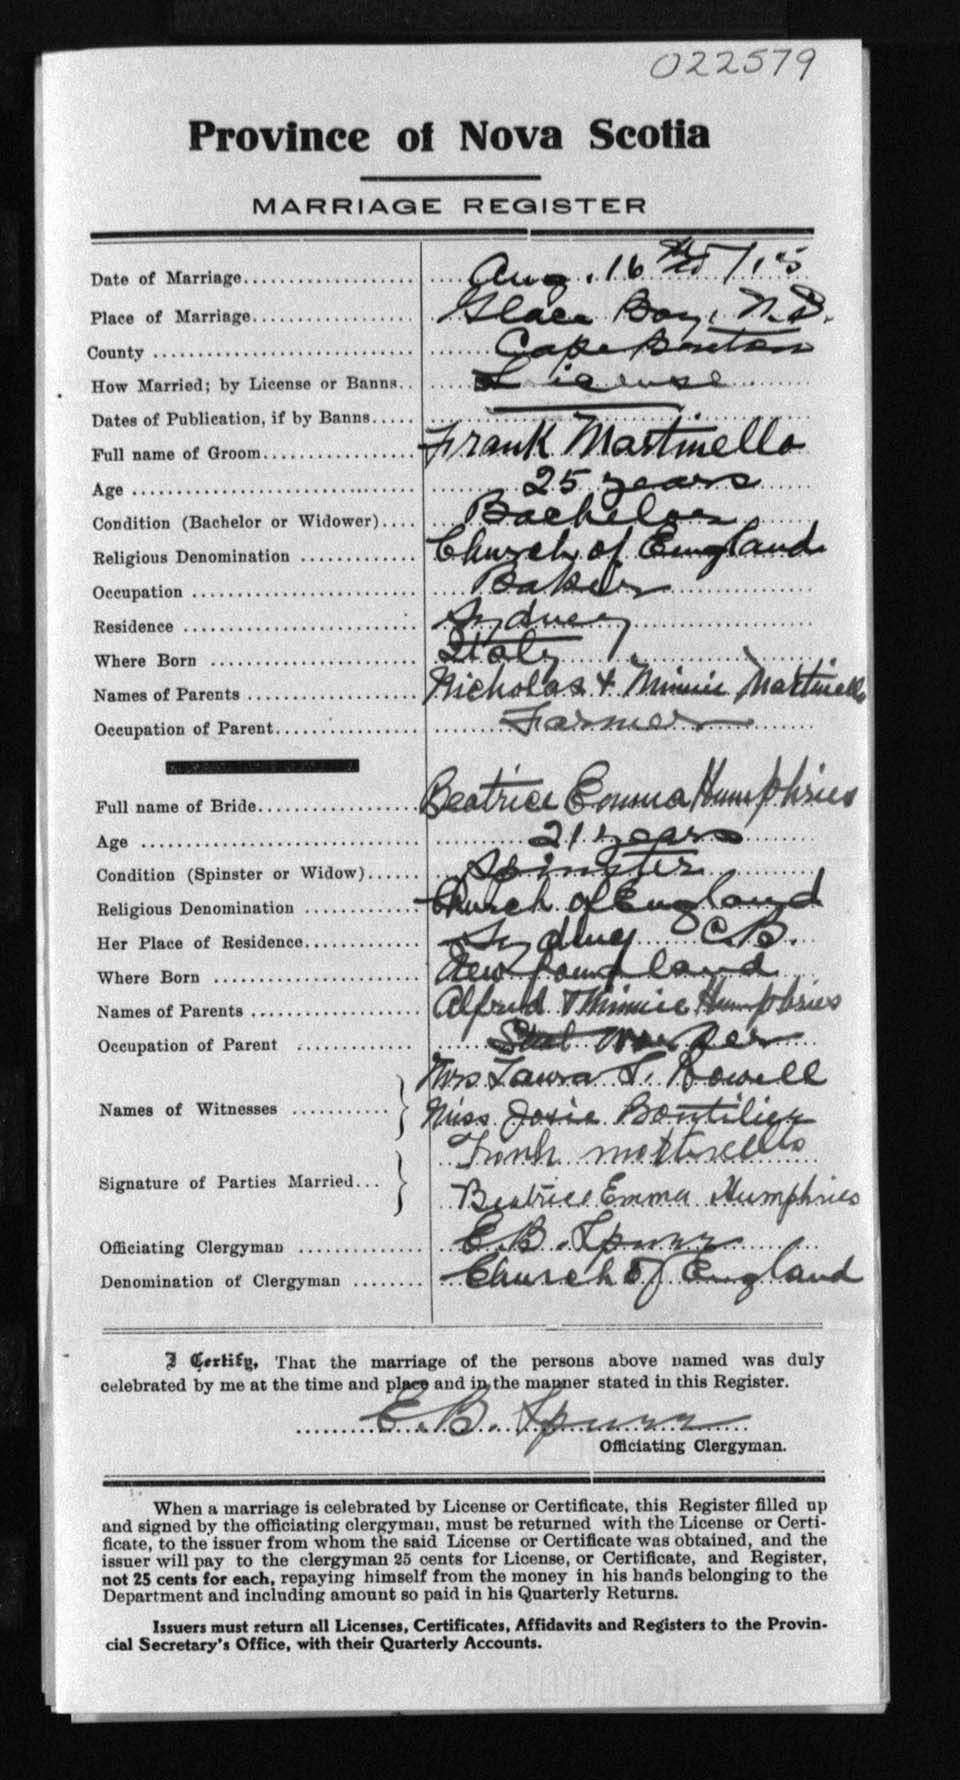 022579
Province of Nova Scotia
MARRIAGE REGISTER
Date of Marriage.................... Aug. 16th /15
Place of Marriage................... Glace Bay, N.S.
County ............................. Cape Breton
How Married; by License or Banns.. License
Dates of Publication, if by Banns.....
Full name of Groom.................. Frank Martinello
Age ................................ 25 years
Condition (Bachelor or Widower).... Bachelor
Religious Denomination ............. Church of England
Occupation ......................... Baker
Residence .......................... Sydney
Where Born ......................... Italy
Names of Parents ................... Nicholas & Minnie Martinello
Occupation of Parent................ Farmer
Full name of Bride.................. Beatrice Emma Humphries
Age ................................ 21 years
Condition (Spinster or Widow)...... Spinster
Religious Denomination ............. Church of England
Her Place of Residence.............. Sydney C.B.
Where Born ......................... Newfoundland
Names of Parents ................... Alfred & Minnie Humphries
Occupation of Parent ............. Steel Worker
Mrs Laura T. Rowell
Names of Witnesses ............
Miss Josie Bontilier
Frank Martinello
Signature of Parties Married...
Beatrice Emma Humphries
Officiating Clergyman ............. E.B. Spurr
Denomination of Clergyman ........ Church of England
I Certify, That the marriage of the persons above named was duly
celebrated by me at the time and place and in the manner stated in this Register.
E. B. Spurr
Officiating Clergyman.
When a marriage is celebrated by License or Certificate, this Register filled up
and signed by the officiating clergyman, must be returned with the License or Certi-
ficate, to the issuer from whom the said License or Certificate was obtained, and the
issuer will pay to the clergyman 25 cents for License, or Certificate, and Register,
not 25 cents for each, repaying himself from the money in his hands belonging to the
Department and including amount so paid in his Quarterly Returns.
Issuers must return all Licenses, Certificates, Affidavits and Registers to the Provin-
cial Secretary's Office, with their Quarterly Accounts.